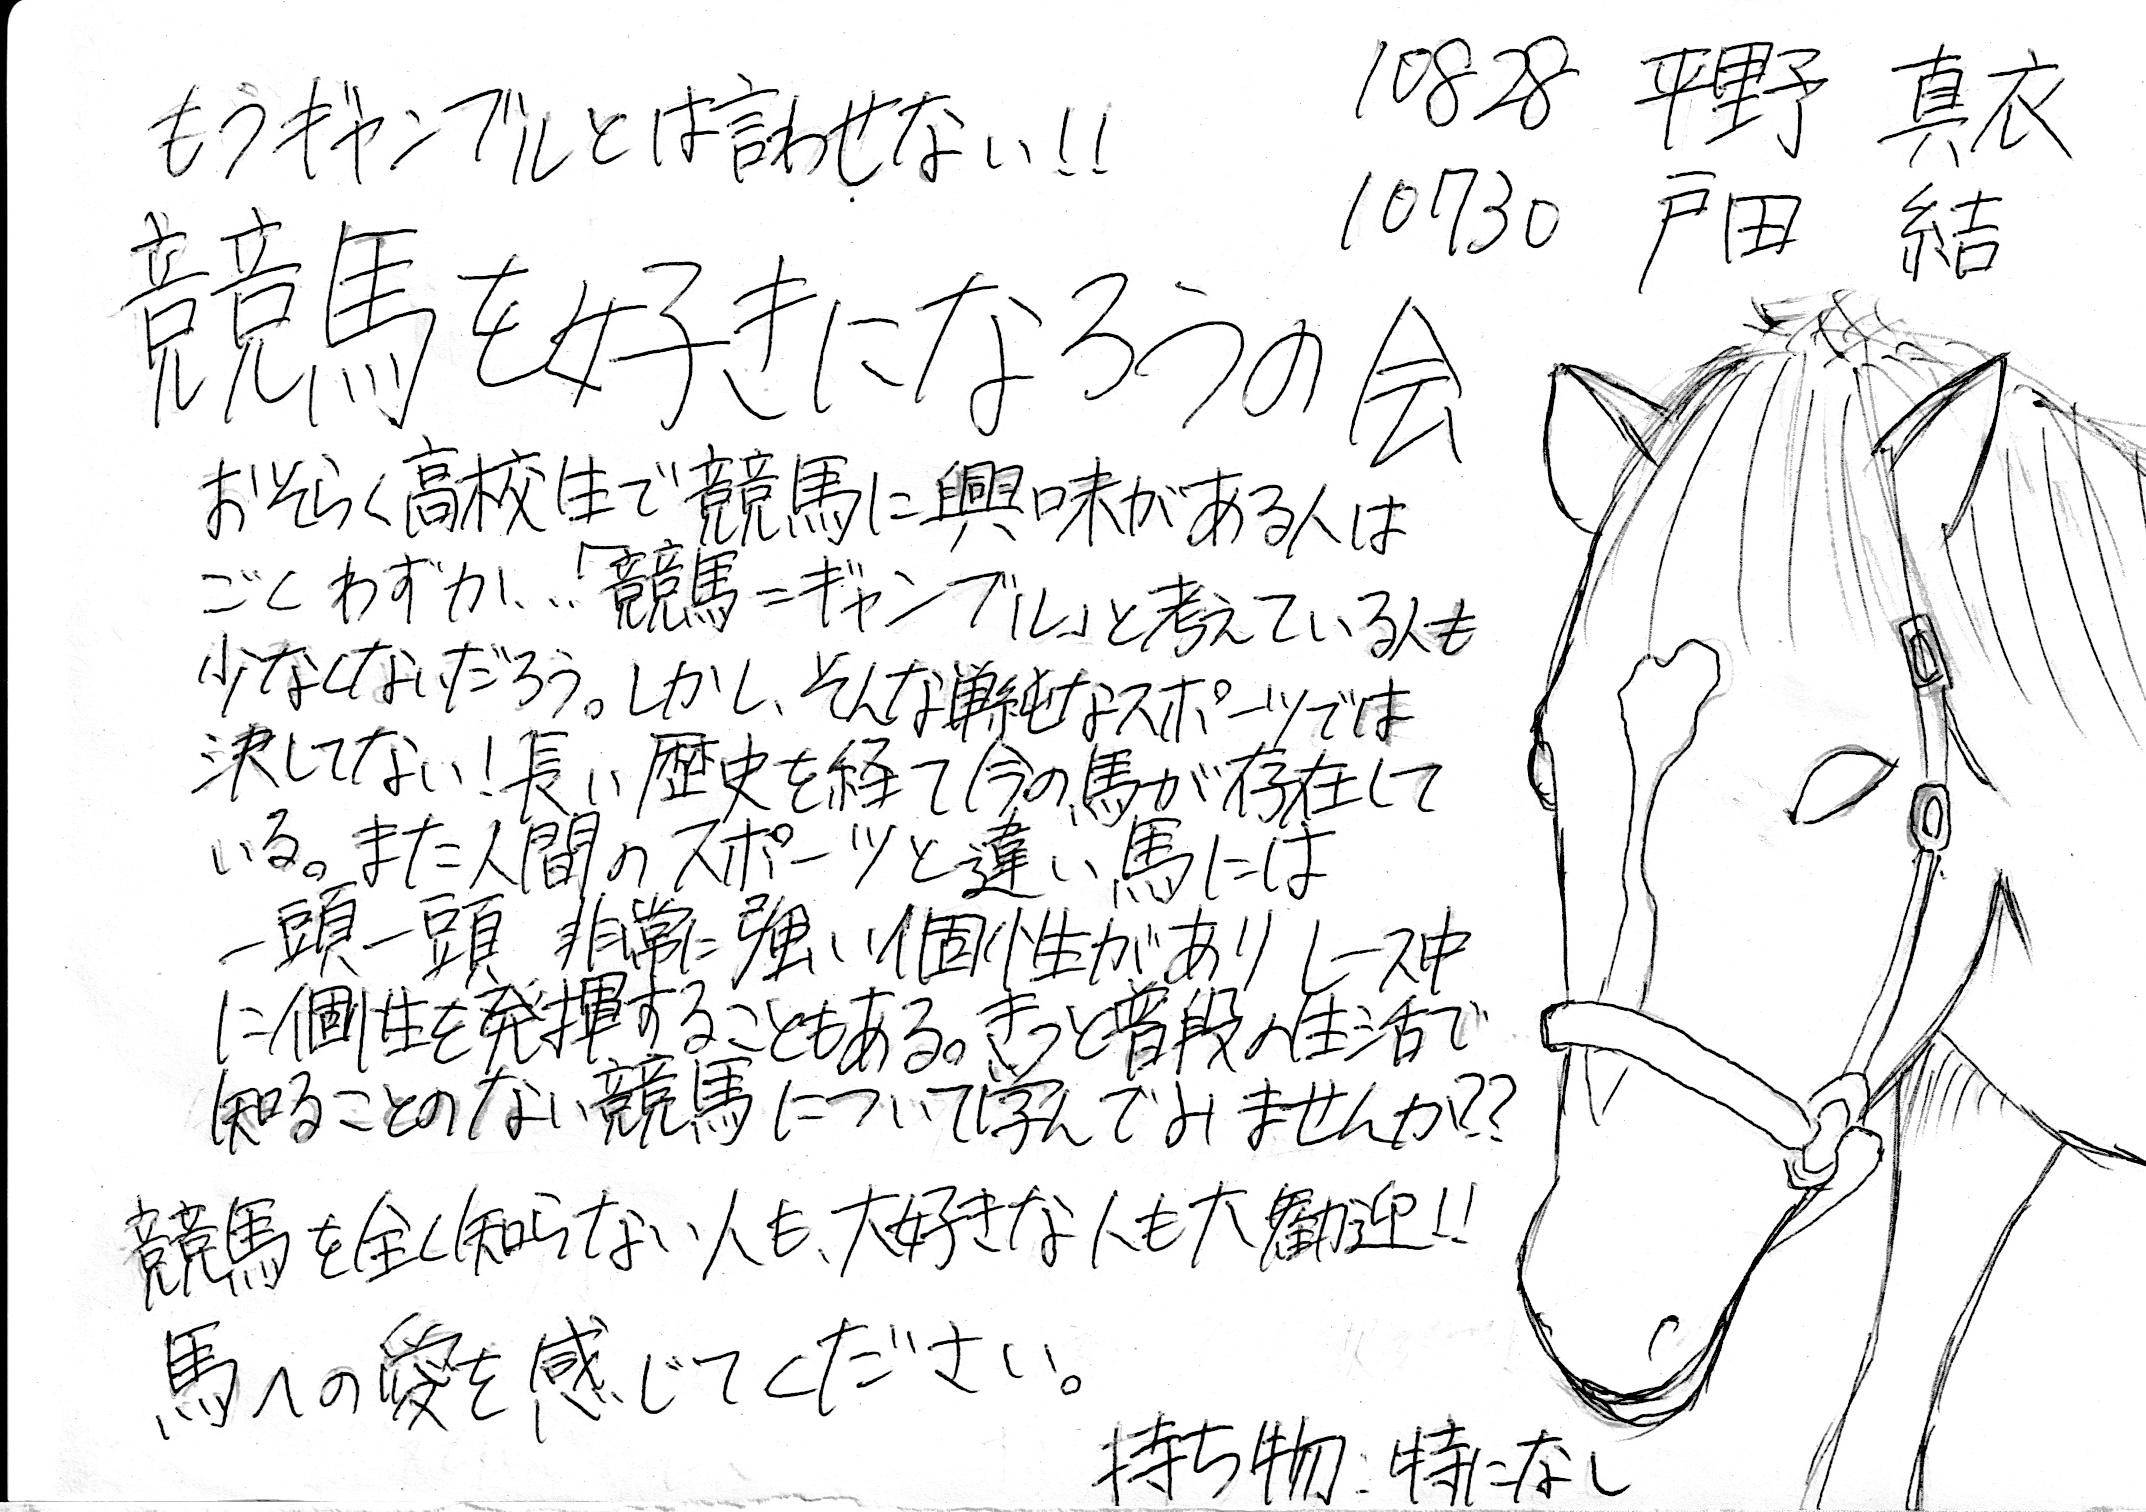 10828 平野 真衣
10730 戸田 結
もうギャンブルとは言わせない!!
競馬を好きになろうの会
おそらく高校生で競馬に興味がある人は
ごくわずか…「競馬=ギャンブル」と考えている人も
少なくないだろう。しかし、そんな単純なスポーツでは
決してない!長い歴史を経て今の馬が存在して
いる。また人間のスポーツと違い馬には
一頭一頭 非常に強い個性がありレース中
に個性を発揮することもある。きっと普段の生活で
知ることのない競馬について学んでみませんか??
競馬を全く知らない人も、大好きな人も大歓迎!!
馬への愛を感じてください。
持ち物:特になし